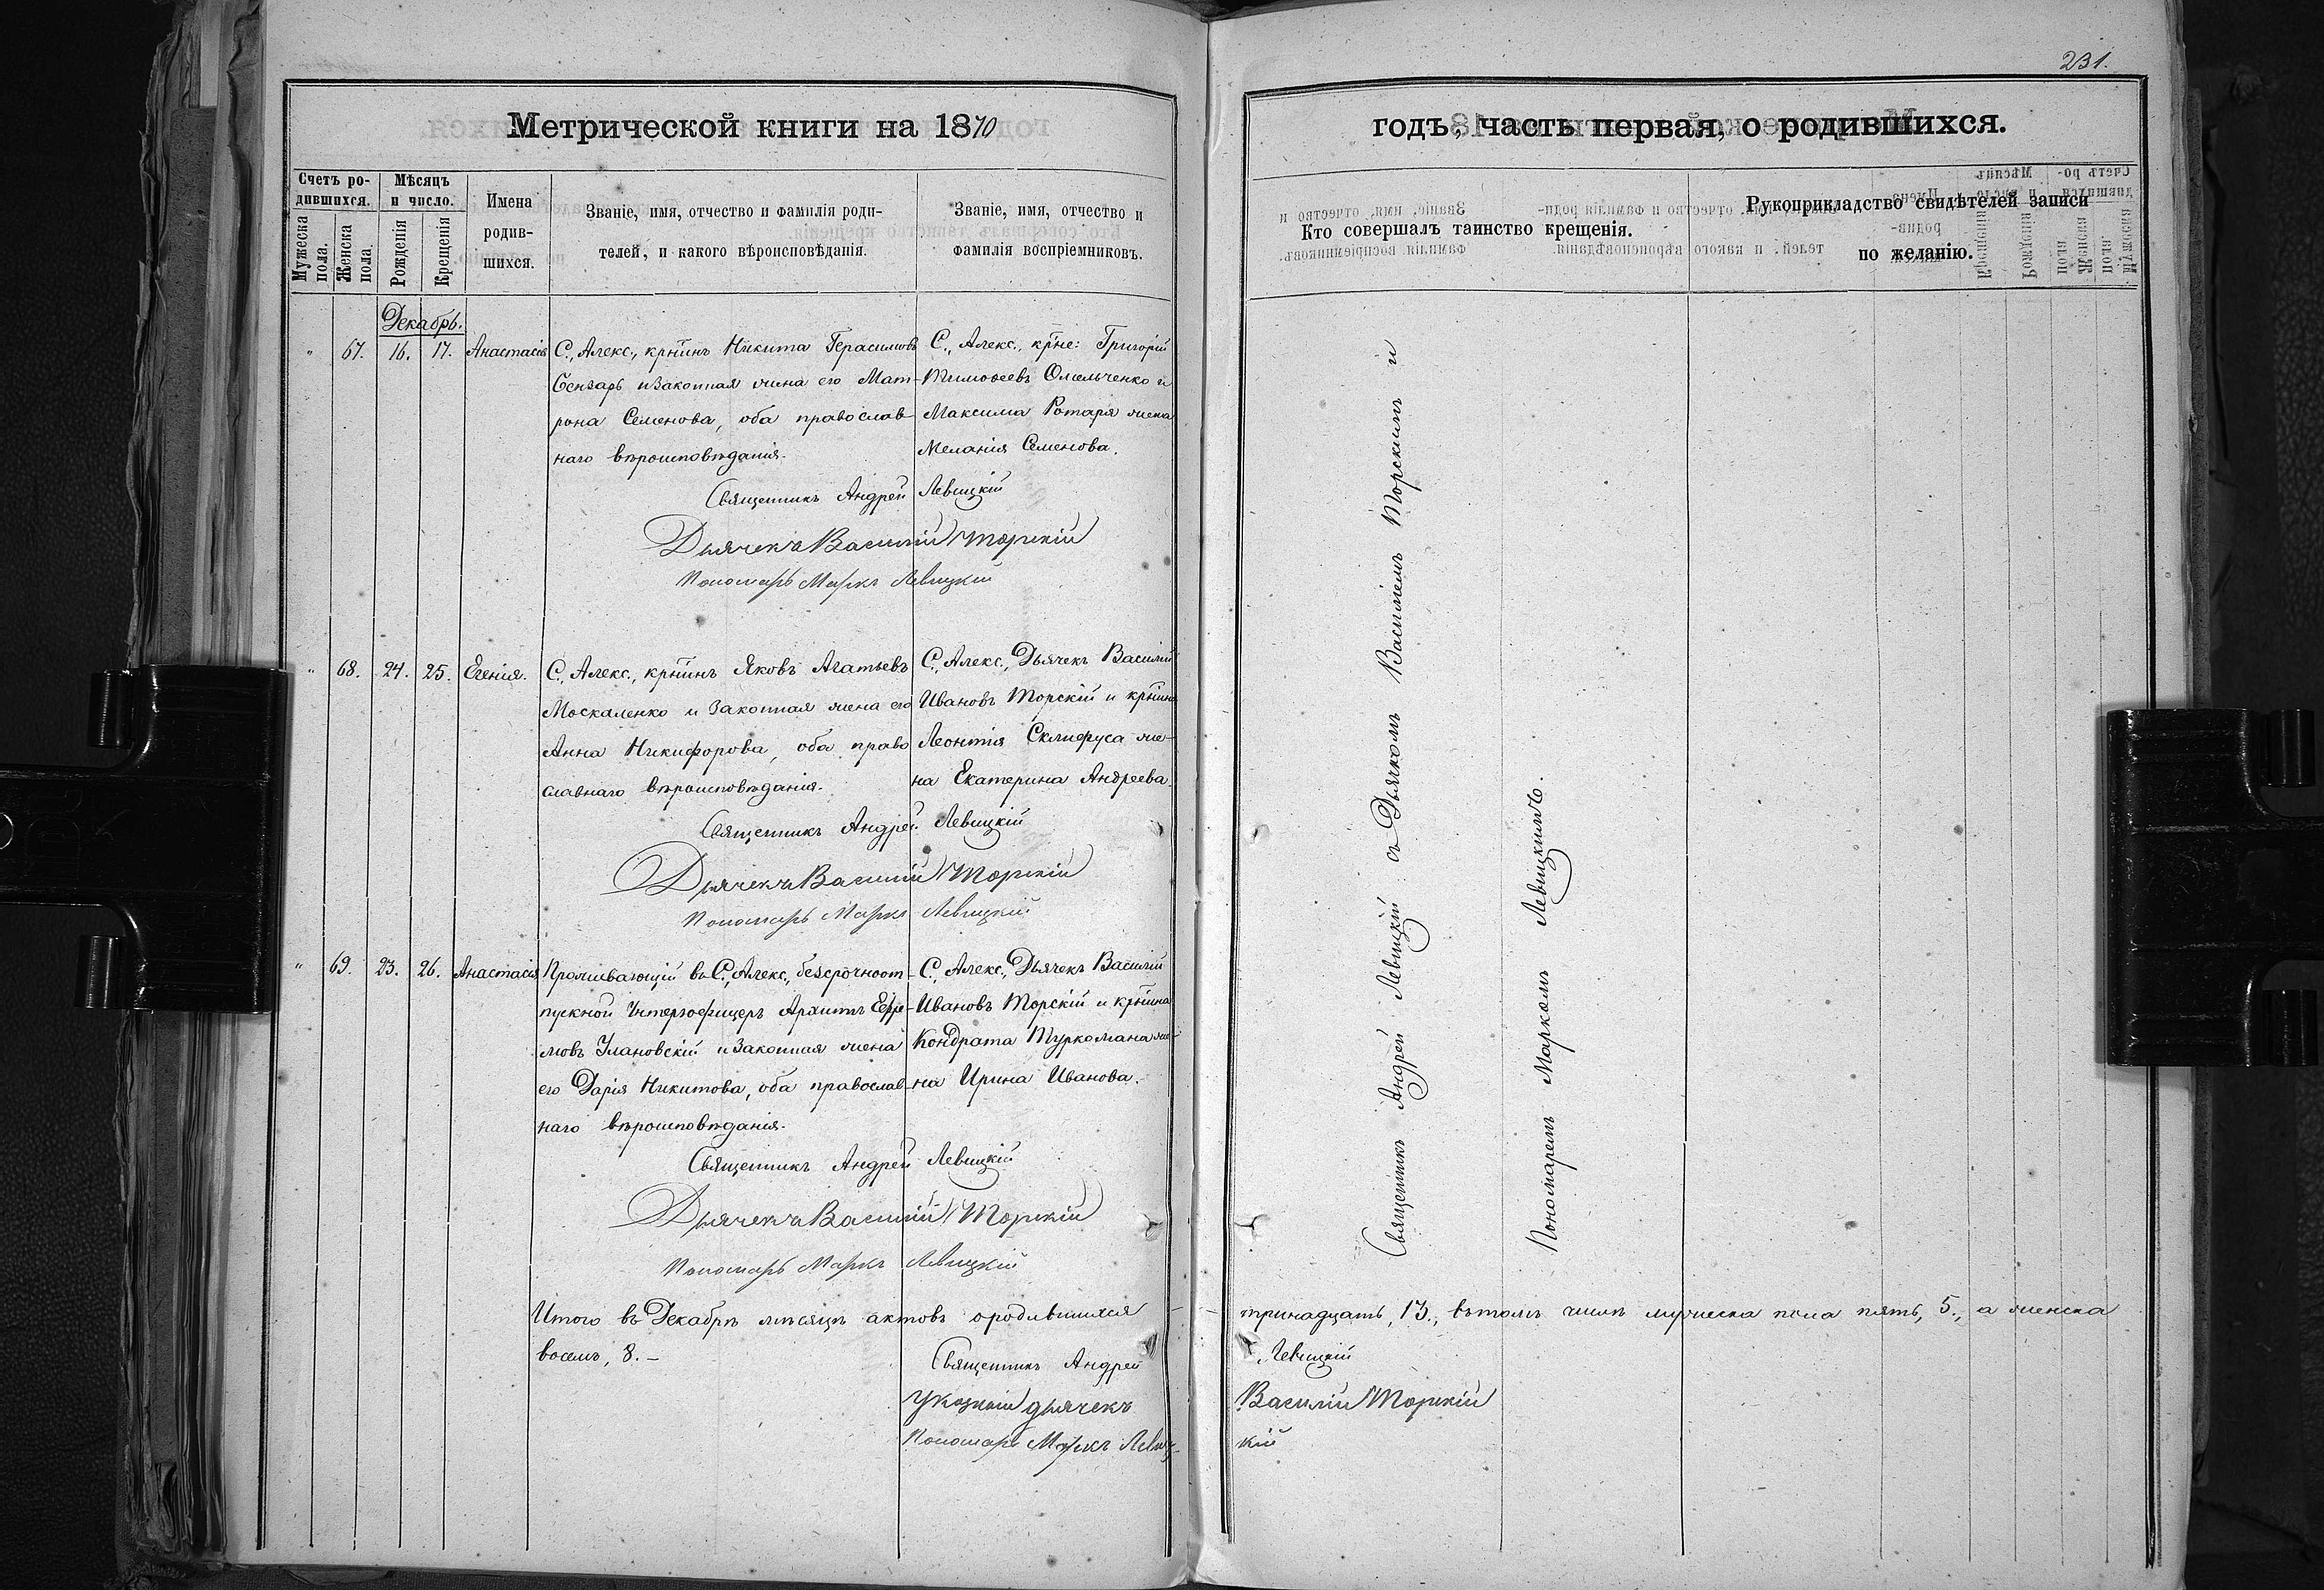 231.
Метрической книги на 1870
годъ, часть первая, о родившихся.
Счетъ ро-
дившихся.
Мужеска
пола.
Женска
пола.
Мѣсяцъ
и число.
Рожденія
Крещенія
Имена
родив-
шихся.
Званіе, имя, отчество и фамилія роди-
телей, и какого вѣроисповѣданія.
Званіе, имя, отчество и
фамилія воспріемниковъ.
Кто совершалъ таинство крещенія.
Рукоприкладство свидѣтелей записи
по желанію.
Декабрь.
" 67. 16. 17. Анастасія
С., Алекс., крнинъ Никита Герасимовъ
Сензарь и законная жена его Мат-
рона Семенова, оба православ-
наго вѣроисповѣданія.
С., Алекс., крне: Григорій
Тимофеевъ Омельченко и
Максима Ротаря жена
Меланія Семенова.
Священникъ Андрей Левицкій
Дьячекъ Василій Торскій
Пономарь Маркъ Левицкій
" 68. 24. 25. Егенія.
С., Алекс., крнинъ Яковъ Агатьевъ
Москаленко и законная жена его
Анна Никифорова, оба право
славнаго вѣроисповѣданія.
С., Алекс., Дьячекъ Василій
Ивановъ Торскій и крнина
Леонтія Склифуса же-
на Екатерина Андреева.
Священникъ Андрей Левицкій
Дьячекъ Василій Торскій
Пономарь Маркъ Левицкій
" 69. 23. 26. Анастасія
Проживающій въ С., Алекс., безсрочноот-
пускной Унтерофицеръ Архипъ Ефре-
мовъ Улановскій и законная жена
его Дарія Никитова, оба православ-
наго вѣроисповѣданія.
С., Алекс., Дьячекъ Василій
Ивановъ Торскій и крнина
Кондрата Туркомана же-
на Ирина Иванова.
Священникъ Андрей Левицкій
Дьячекъ Василій Торскій
Пономарь Маркъ Левицкій
Священникъ Андрей Левицкій съ Дьячкомъ Василіемъ Торскимъ и
Пономаремъ Маркомъ Левицкимъ.
Итого въ Декабрѣ мѣсяцѣ актовъ о родившихся – тринадцать, 13., въ томъ числѣ мужеска пола пять, 5., а женска
восемь, 8. –
Священникъ Андрей Левицкій
Указный дьячекъ Василій Торскій
Пономарь Маркъ Левиц-кій